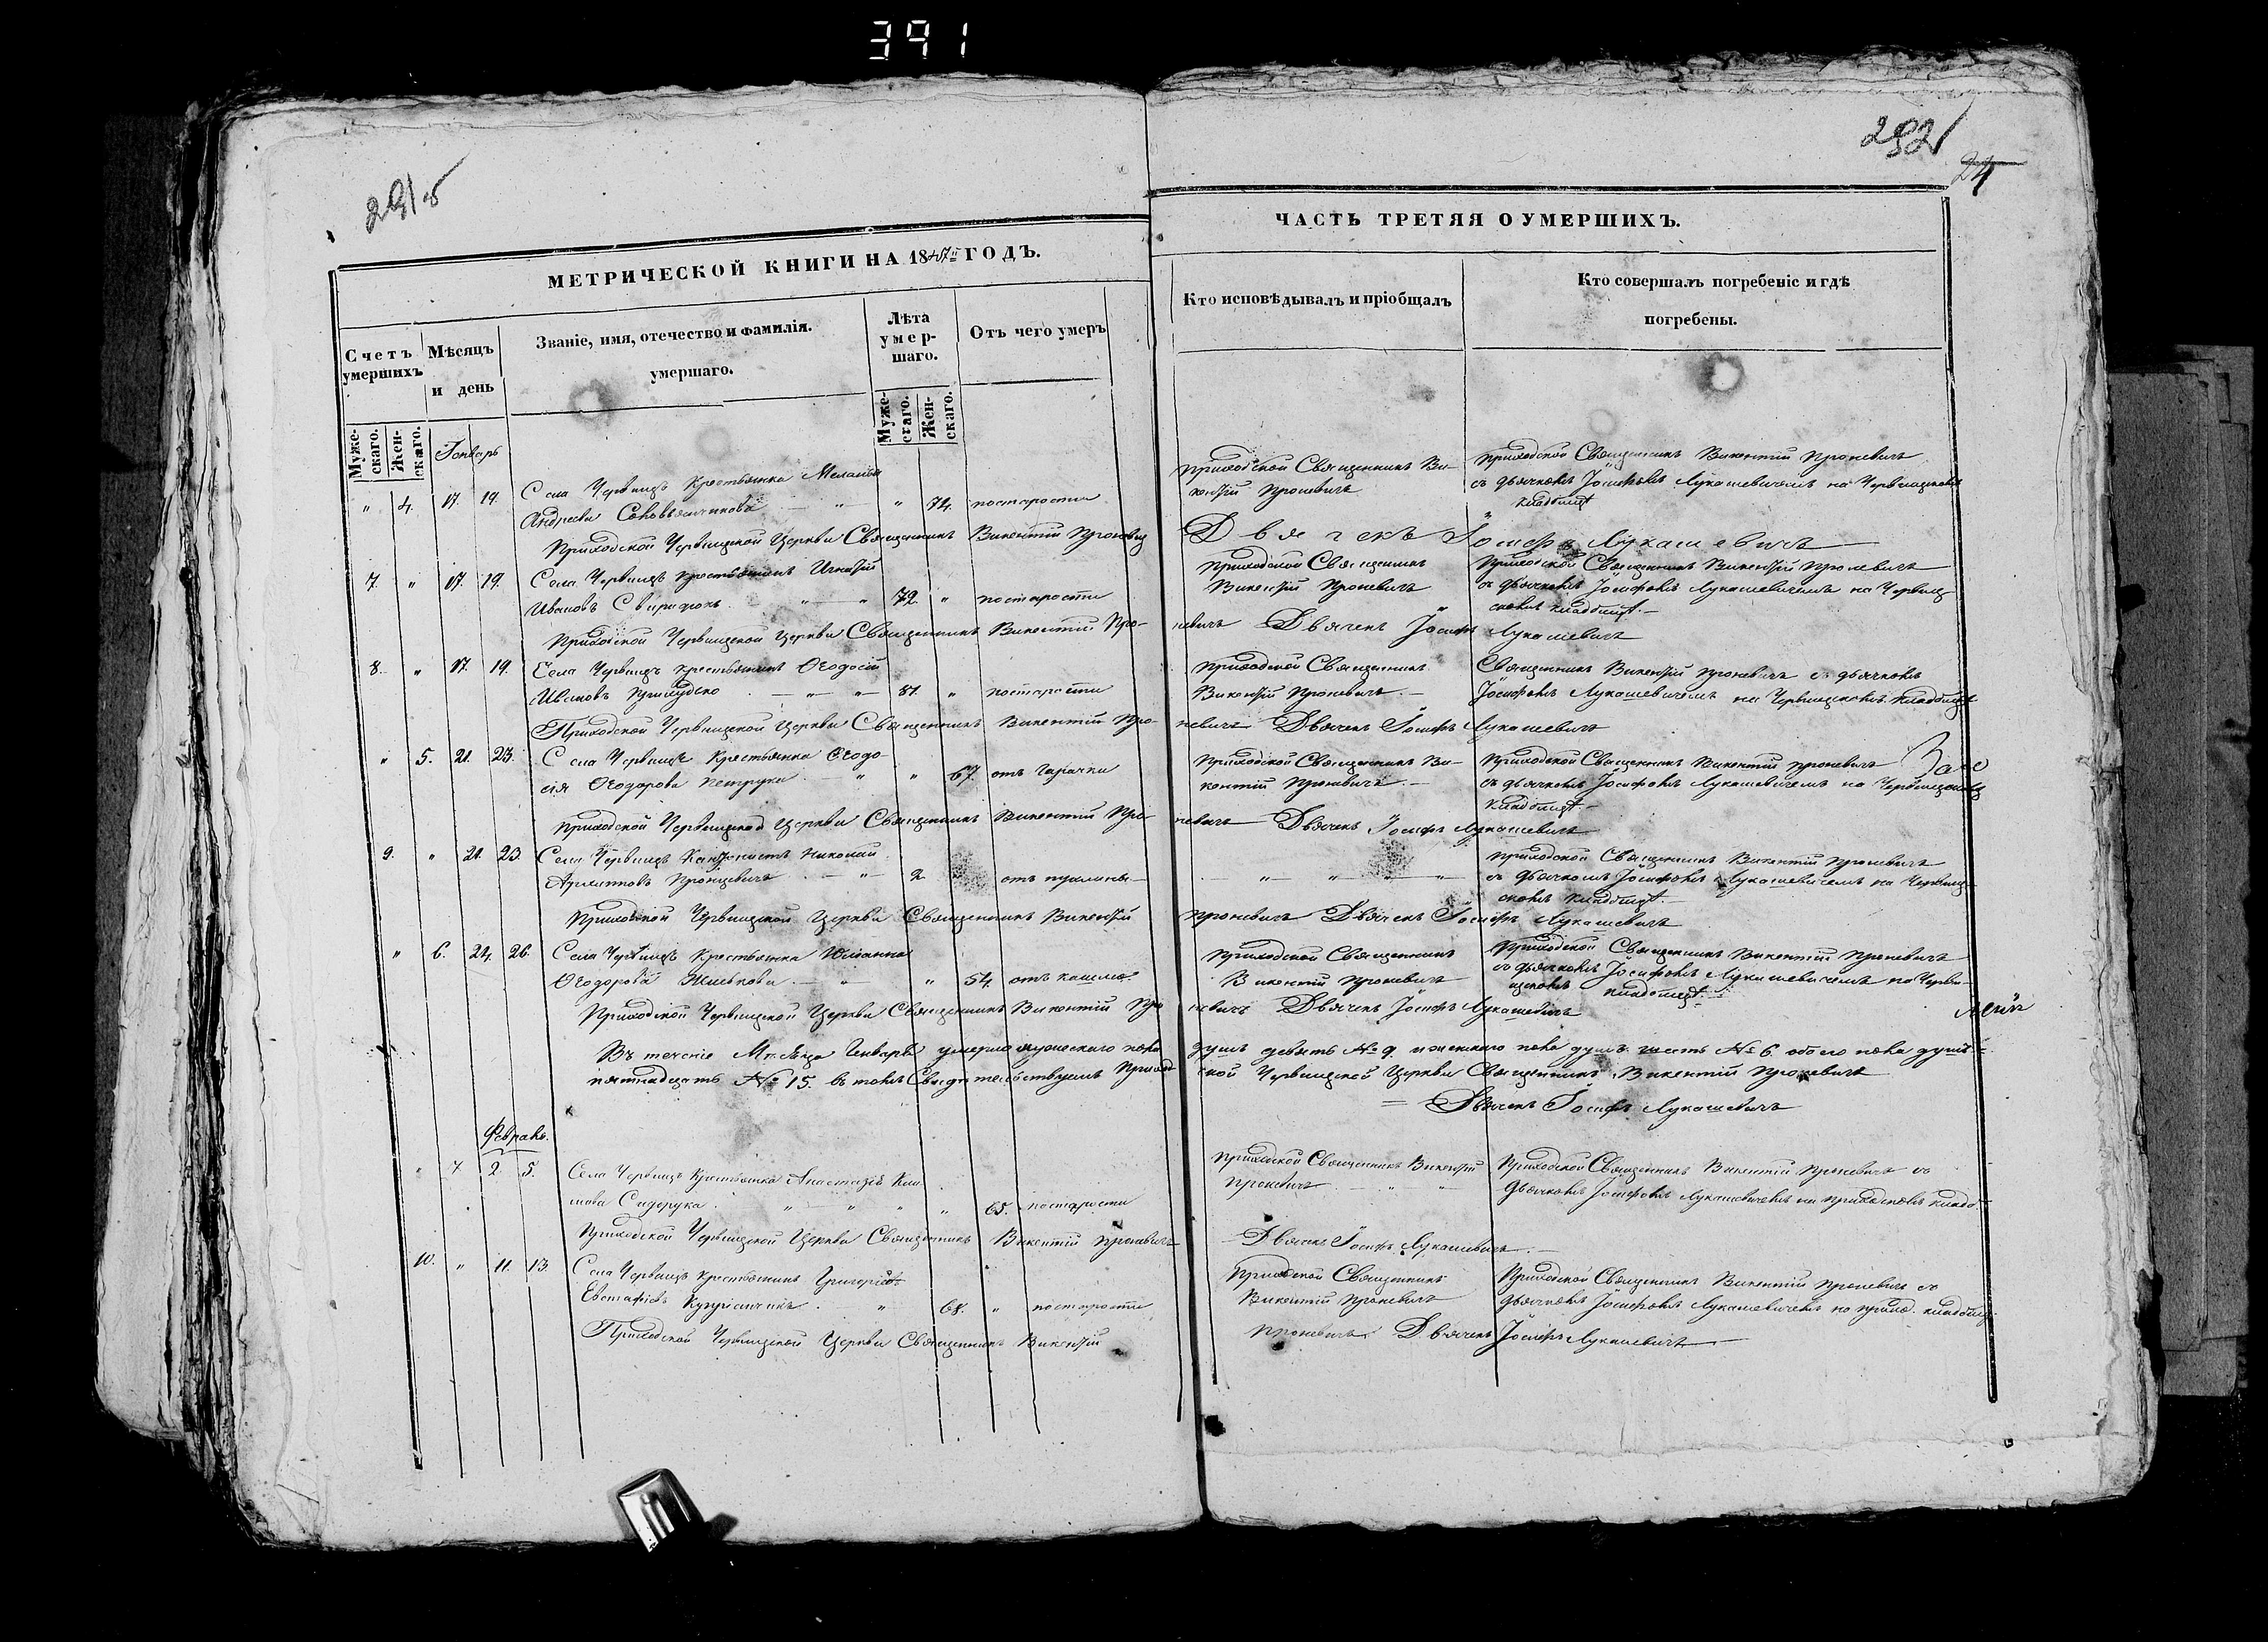 391
292
24
МЕТРИЧЕСКОЙ КНИГИ НА 1847й ГОДЪ.
Счетъ умершихъ
Мѣсяцъ и день
Званіе, имя, отечество и фамилія.
умершаго.
Лѣта умер-
шаго.
Отъ чего умеръ
Муже-
скаго.
Жен-
скаго.
Муже-
скаго.
Жен-
скаго.
" 4. 17. 19. Села Червищъ Крестьянка Меланія
Андреева " 74. по старости
Приходской Червищской Церкви Священникъ Викентій Проневич
7. " 17. 19. Села Червищъ Крестьянинъ Игнатій
Ивановъ Свиридюкъ " 72 " по старости
Приходской Червищской Церкви Священникъ Викентій Про-
8. " 17. 19. Села Червищъ Крестьянинъ Ѳеодосій
Ивановъ 87. " по старости
Приходской Червищской Церкви Священникъ Викентій Про-
" 5. 21. 23. Села Червищъ Крестьянка Ѳеодо-
сія Ѳеодорова Петрука " " 67. отъ горячки
Приходской Червищской Церкви Священникъ Викентій Про-
9. " 21. 23. Села Червищъ Кантонистъ Николай
2
Приходской Червищской Церкви Священникъ Викентій
" 6. 24. 26. Села Червищъ Крестьянка Юліанна
Ѳеодорова " 54. отъ кашля
Приходской Червищской Церкви Священникъ Викентій Про
Въ теченіе Мѣсяца Генваря умерло мужескаго пола
пятнадцать № 15. въ томъ Свидѣтельствуемъ Приход-
Февраль.
" 7. 2. 5. Села Червищъ Крестьянка Анастасія Кли-
мова Сидорука " " " " 65. по старости
Приходской Червищской Церкви Священникъ Викентій Проневичъ
10. " 11. 13. Села Червищъ Крестьянинъ Григорій
Евстафіевъ " 68. " по старости
Приходской Червищской Церкви Священникъ Викентій
ЧАСТЬ ТРЕТЯЯ О УМЕРШИХЪ.
Кто исповѣдывалъ и пріобщалъ
Кто совершалъ погребеніе и гдѣ
погребены.
Приходской Священникъ Ви-
кентій Проневичъ
Приходской Священникъ Викентій Проневичъ
съ дьячкомъ Іосифомъ Лукашевичемъ на Червищскомъ
кладбищѣ
Дьячекъ Іосифъ Лукашевичъ
Приходской Священникъ
Викентій Проневичъ
Приходской Священникъ Викентій Проневичъ
съ дьячкомъ Іосифомъ Лукашевичемъ на Червищ-
скомъ кладбищѣ.
невичъ Дьячекъ Іосифъ Лукашевичъ
Приходской Священникъ
Викентій Проневичъ.
Священникъ Викентій Проневичъ съ дьячкомъ
Іосифомъ Лукашевичемъ на Червищскомъ кладбищѣ
невичъ Дьячекъ Іосифъ Лукашевичъ
Приходской Священникъ Ви-
кентій Проневичъ.
Приходской Священникъ Викентій Проневичъ
съ дьячкомъ Іосифомъ Лукашевичемъ на Червищскомъ
кладбищѣ.
невичъ Дьячекъ Іосифъ Лукашевичъ
Приходской Священникъ Викентій Проневичъ
съ дьячкомъ Іосифомъ Лукашевичемъ на Червищ-
скомъ кладбищѣ.
Проневичъ Дьячекъ Іосифъ Лукашевичъ
Приходской Священникъ
Викентій Проневичъ
Приходской Священникъ Викентій Проневичъ
съ дьячкомъ Іосифомъ Лукашевичемъ на Черви-
щскомъ кладбищѣ.
невичъ Дьячекъ Іосифъ Лукашевичъ
душъ девять № 9. и женскаго пола душъ шесть № 6. обоего пола душъ
ской Червищской Церкви Священникъ Викентій Проневичъ
Дьячекъ Іосифъ Лукашевичъ
Приходской Священникъ Викентій
Проневичъ
Приходской Священникъ Викентій Проневичъ съ
дьячкомъ Іосифомъ Лукашевичемъ на приходскомъ кладб.
Дьячекъ Іосифъ Лукашевичъ.
Приходской Священникъ
Викентій Проневичъ
Приходской Священникъ Викентій Проневичъ съ
дьячкомъ Іосифомъ Лукашевичемъ на приход. кладбищ.
Проневичъ. Дьячекъ Іосифъ Лукашевичъ